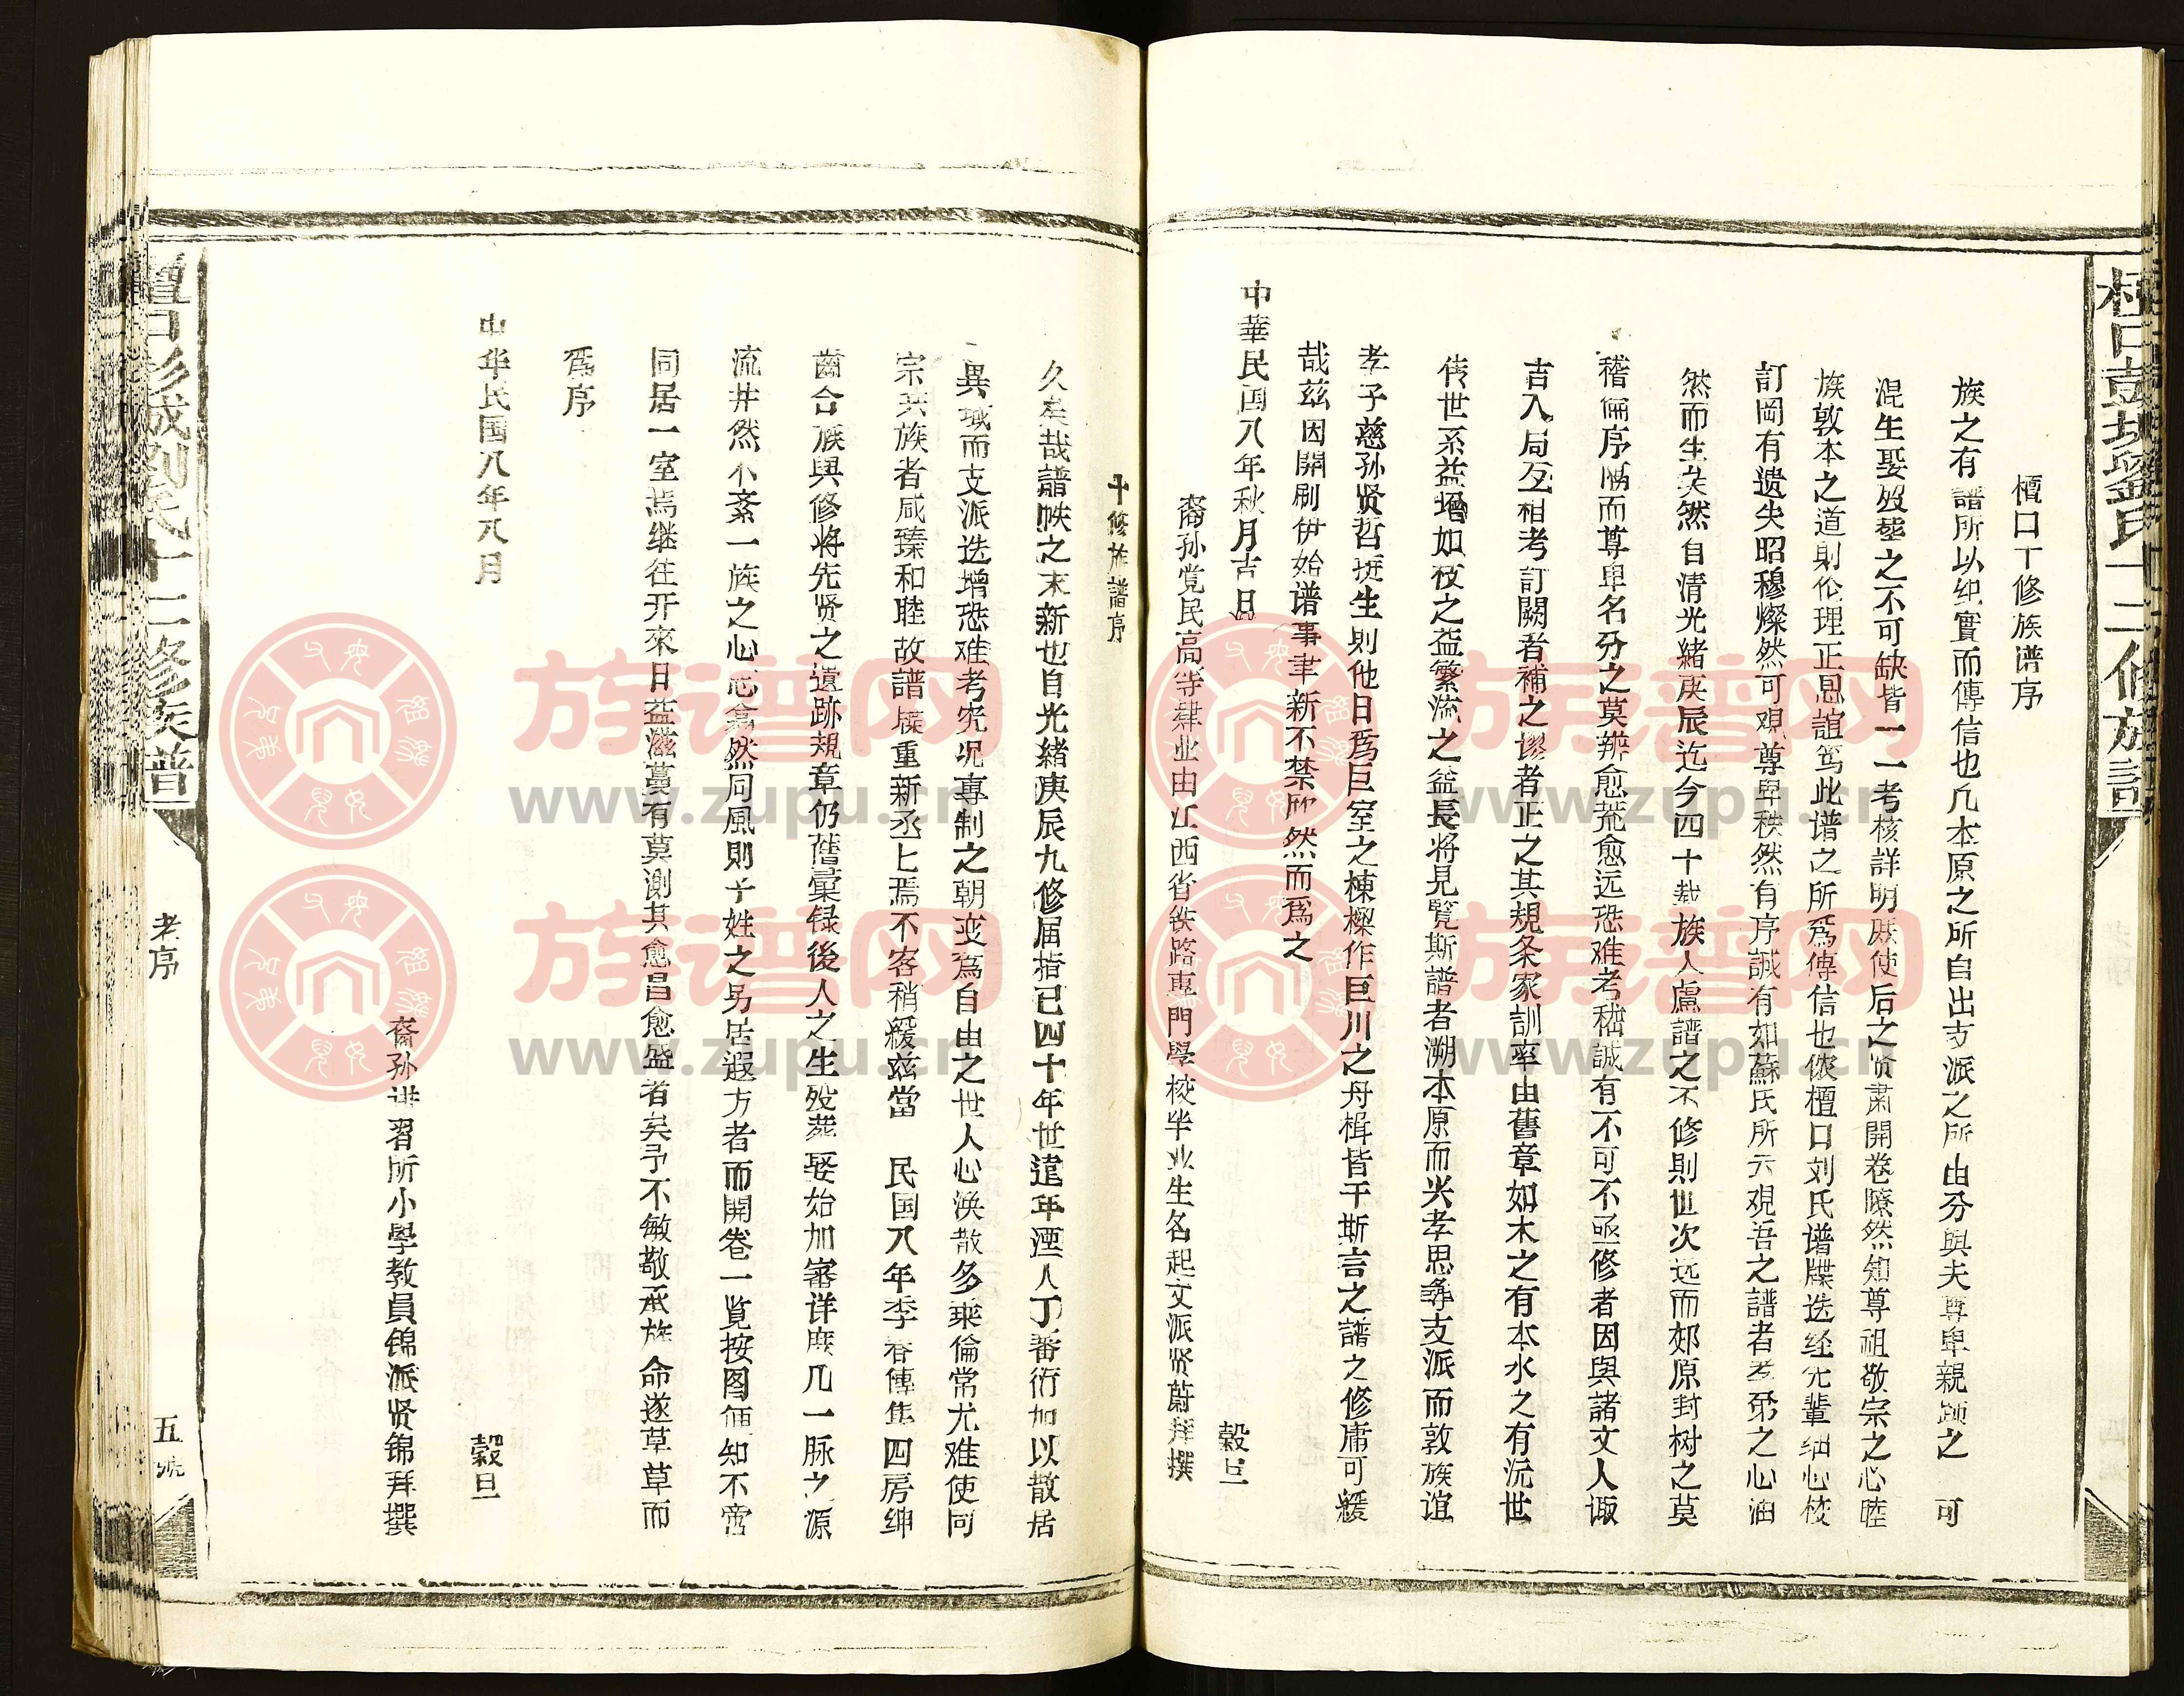 檀口彭城劉氏十二修族譜
檀口丁修族谱序
族之有譜所以纪實而傳信也凡本原之所自出支派之所由分與夫尊卑親踈之可
混生娶殁塟之不可缺皆一一考核詳明厥使后之贤肃開卷瞭然知尊祖敬宗之心睦
族敦本之道則伦理正恩誼笃此谱之所爲傳信也檀口刘氏谱牒迭经先輩细心校
訂罔有遗失昭穆燦然可观尊卑秩然有序誠有如蘇氏所云观吾之譜者孝弟之心油
然而生矣然自清光緒庚辰迄今四十载族人慮譜之不修則世次远而郊原封树之莫
稽倫序隔而尊卑名分之莫辨愈荒愈远恐难考嵇誠有不可不亟修者因與諸文人诹
吉入局互相考訂闕者補之谬者正之其規条家訓率由舊章如木之有本水之有沅世
传世系益增如枝之益繁流之益長将見覽斯譜者溯本原而兴孝思尋支派而敦族谊
孝子慈孙贤哲挺生則他日爲巨室之棟樑作巨川之舟楫皆于斯言之譜之修庸可緩
哉兹因開刷伊始谱事聿新不禁欣然而爲之
中華民国八年秋月吉日 穀旦
裔孙党民高等肄业由江西省铁路專門學校毕业生名起文派贤蔚拜撰
十修族譜序
久矣哉譜帙之末新也自光緒庚辰九修届指已四十年世遠年湮人丁蕃衍加以散居
異域而支派迭增恐难考究况專制之朝变爲自由之世人心涣散多乘倫常尤难使同
宗共族者咸臻和睦故譜牒重新丞七焉不容稍緩兹當 民国八年季春傳集四房绅
齒合族與修将先贤之遺跡規章仍舊彙録後人之生殁葬娶始加審详庶几一脉之源
流井然不紊一族之心志翕然同風則子姓之另居遐方者而開卷一览按图便知不啻
同居一室焉继往开來日益滋蔓有莫測其愈昌愈盛者矣予不敏敬承族命遂草草而
爲序
中华民国八年八月 穀旦
裔孙讲習所小學教員锦派贤锦拜撰
檀口彭城劉氏十二修族譜
老序
五號
族谱网
www.zupu.cn
族谱网
www.zupu.cn
族谱网
www.zupu.cn
族谱网
www.zupu.cn